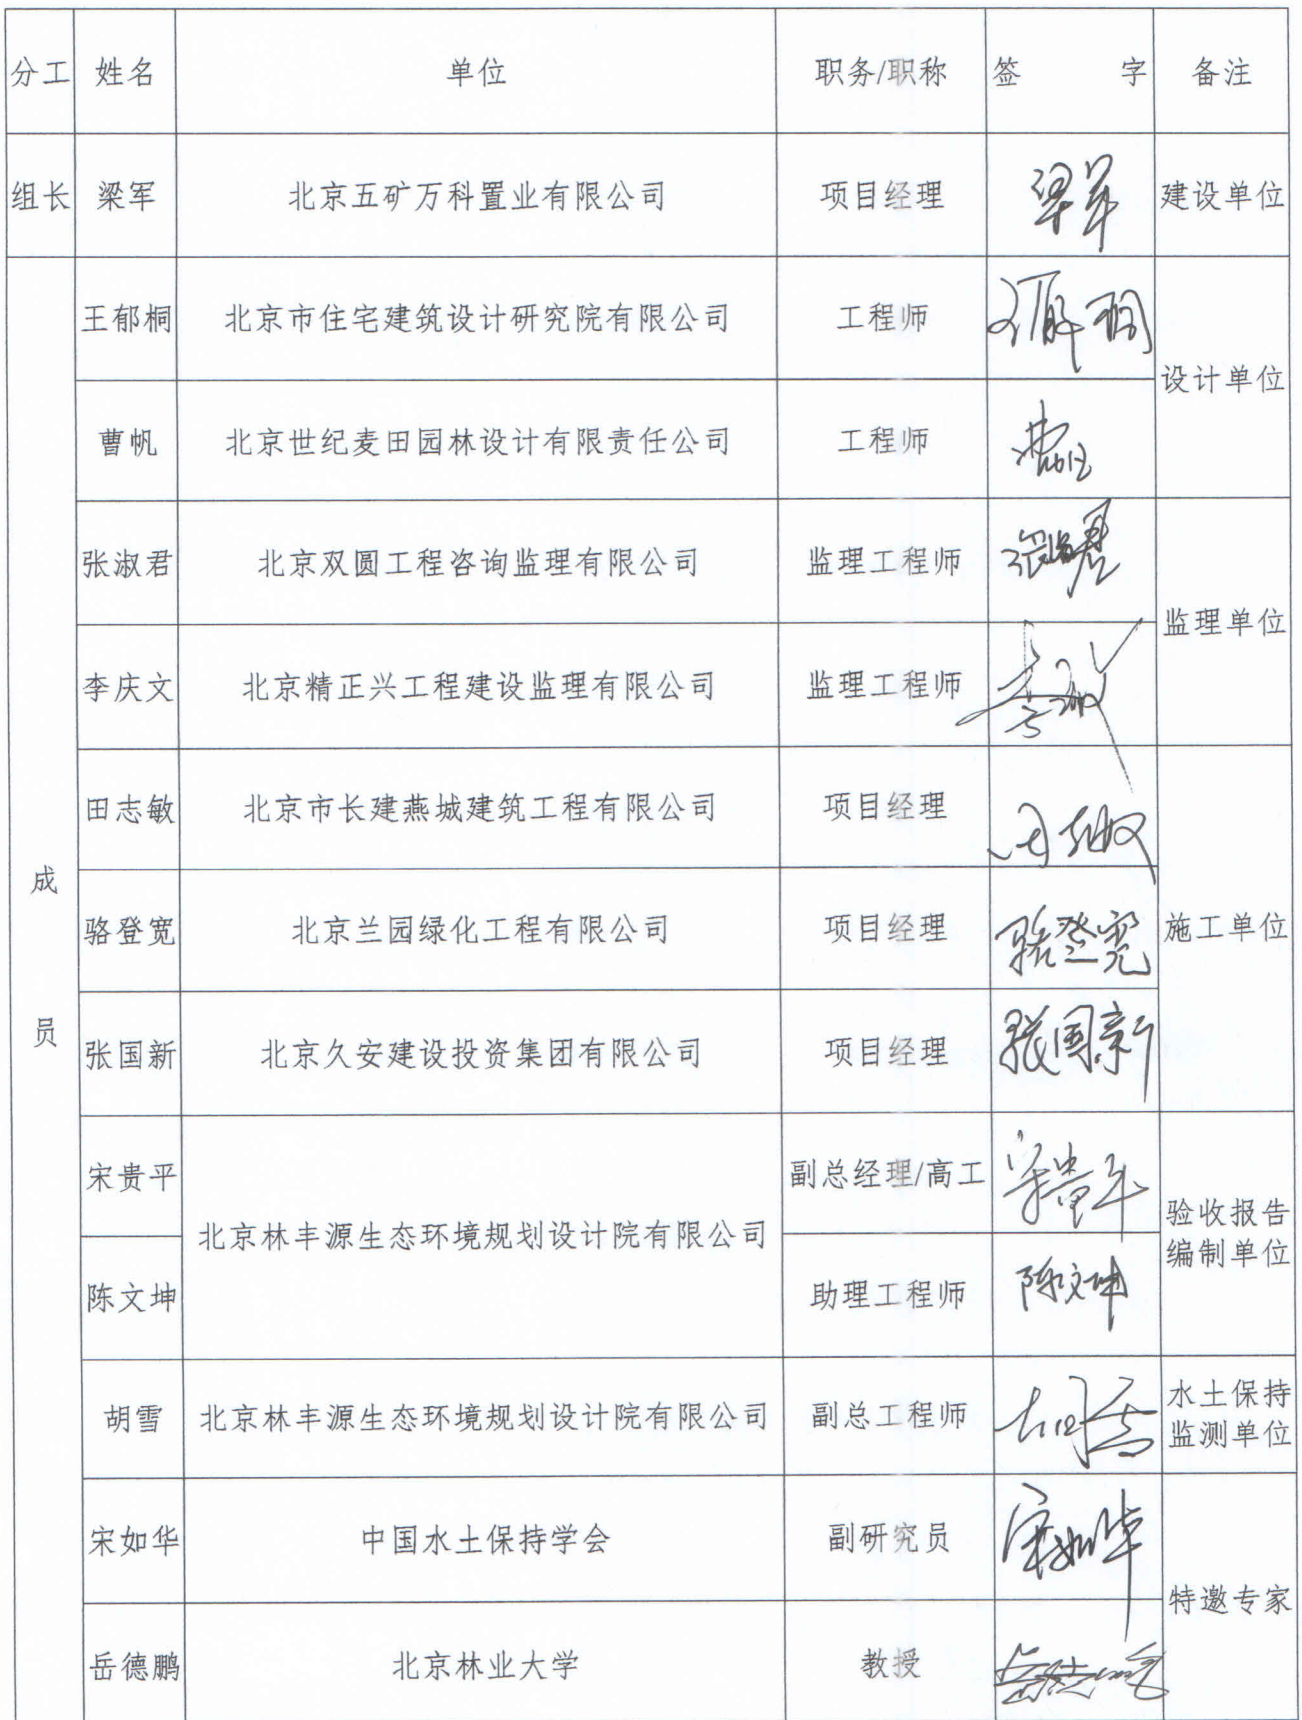 分工 姓名 单位 职务/职称 签 字 备注
组长 梁军 北京五矿万科置业有限公司 项目经理 梁军 建设单位
成员
王郁桐 北京市住宅建筑设计研究院有限公司 工程师 王郁桐 设计单位
曹帆 北京世纪麦田园林设计有限责任公司 工程师
张淑君 北京双圆工程咨询监理有限公司 监理工程师 张淑君 监理单位
李庆文 北京精正兴工程建设监理有限公司 监理工程师
田志敏 北京市长建燕城建筑工程有限公司 项目经理 田志敏 施工单位
骆登宽 北京兰园绿化工程有限公司 项目经理 骆登宽
张国新 北京久安建设投资集团有限公司 项目经理 张国新
宋贵平 北京林丰源生态环境规划设计院有限公司 副总经理/高工 宋贵平 验收报告
编制单位
陈文坤 助理工程师 陈文坤
胡雪 北京林丰源生态环境规划设计院有限公司 副总工程师 胡雪 水土保持
监测单位
宋如华 中国水土保持学会 副研究员 宋如华 特邀专家
岳德鹏 北京林业大学 教授